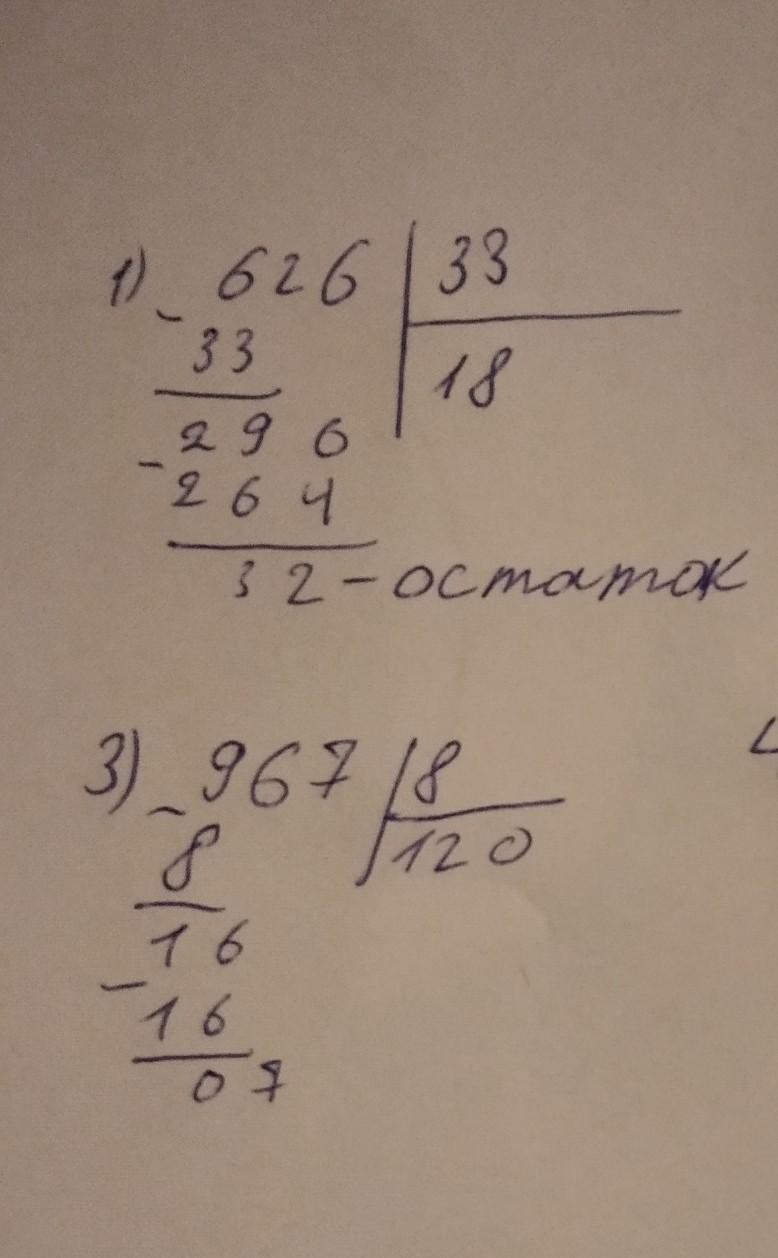 1) - 626 | 33
33 18
- 296
264
32 - остаток
3) - 967 | 8
8 120
- 16
16
07